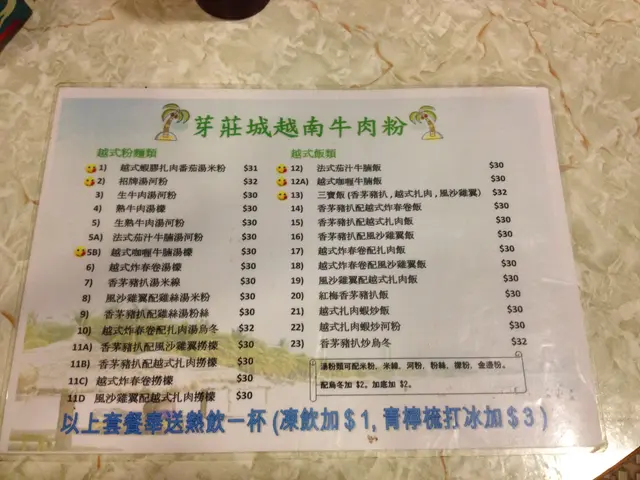 芽莊城越南牛肉粉
越式粉麵類
1) 越式蝦膠扎肉番茄湯米粉 $31
2) 招牌湯河粉 $32
3) 生牛肉湯河粉 $30
4) 熟牛肉湯檬 $30
5) 生熟牛肉湯河粉 $30
5A) 法式茄汁牛腩湯河粉 $30
5B) 越式咖喱牛腩湯檬 $30
6) 越式炸春卷湯檬 $30
7) 香茅豬扒湯米線 $30
8) 風沙雞翼配雞絲湯米粉 $30
9) 香茅豬扒配雞絲湯粉絲 $30
10) 越式炸春卷配扎肉湯烏冬 $32
11A) 香茅豬扒配風沙雞翼撈檬 $30
11B) 香茅豬扒配越式扎肉撈檬 $30
11C) 越式炸春卷撈檬 $30
11D 風沙雞翼配越式扎肉撈檬 $30
越式飯類
12) 法式茄汁牛腩飯 $30
12A) 越式咖喱牛腩飯 $30
13) 三寶飯 (香茅豬扒 , 越式扎肉 , 風沙雞翼) $32
14) 香茅豬扒配越式炸春卷飯 $30
15) 香茅豬扒配越式扎肉飯 $30
16) 香茅豬扒配風沙雞翼飯 $30
17) 越式炸春卷配扎肉飯 $30
18) 越式炸春卷配風沙雞翼飯 $30
19) 風沙雞翼配越式扎肉飯 $30
20) 紅梅香茅豬扒飯 $30
21) 越式扎肉蝦炒飯 $30
22) 越式扎肉蝦炒河粉 $30
23) 香茅豬扒炒烏冬 $32
湯粉類可配米粉，米線，河粉，粉絲，檬粉，金邊粉。
配烏冬加 $2。加底加 $2。
以上套餐畢送熱飲一杯 (凍飲加 $ 1, 青檸梳打冰加 $ 3 )